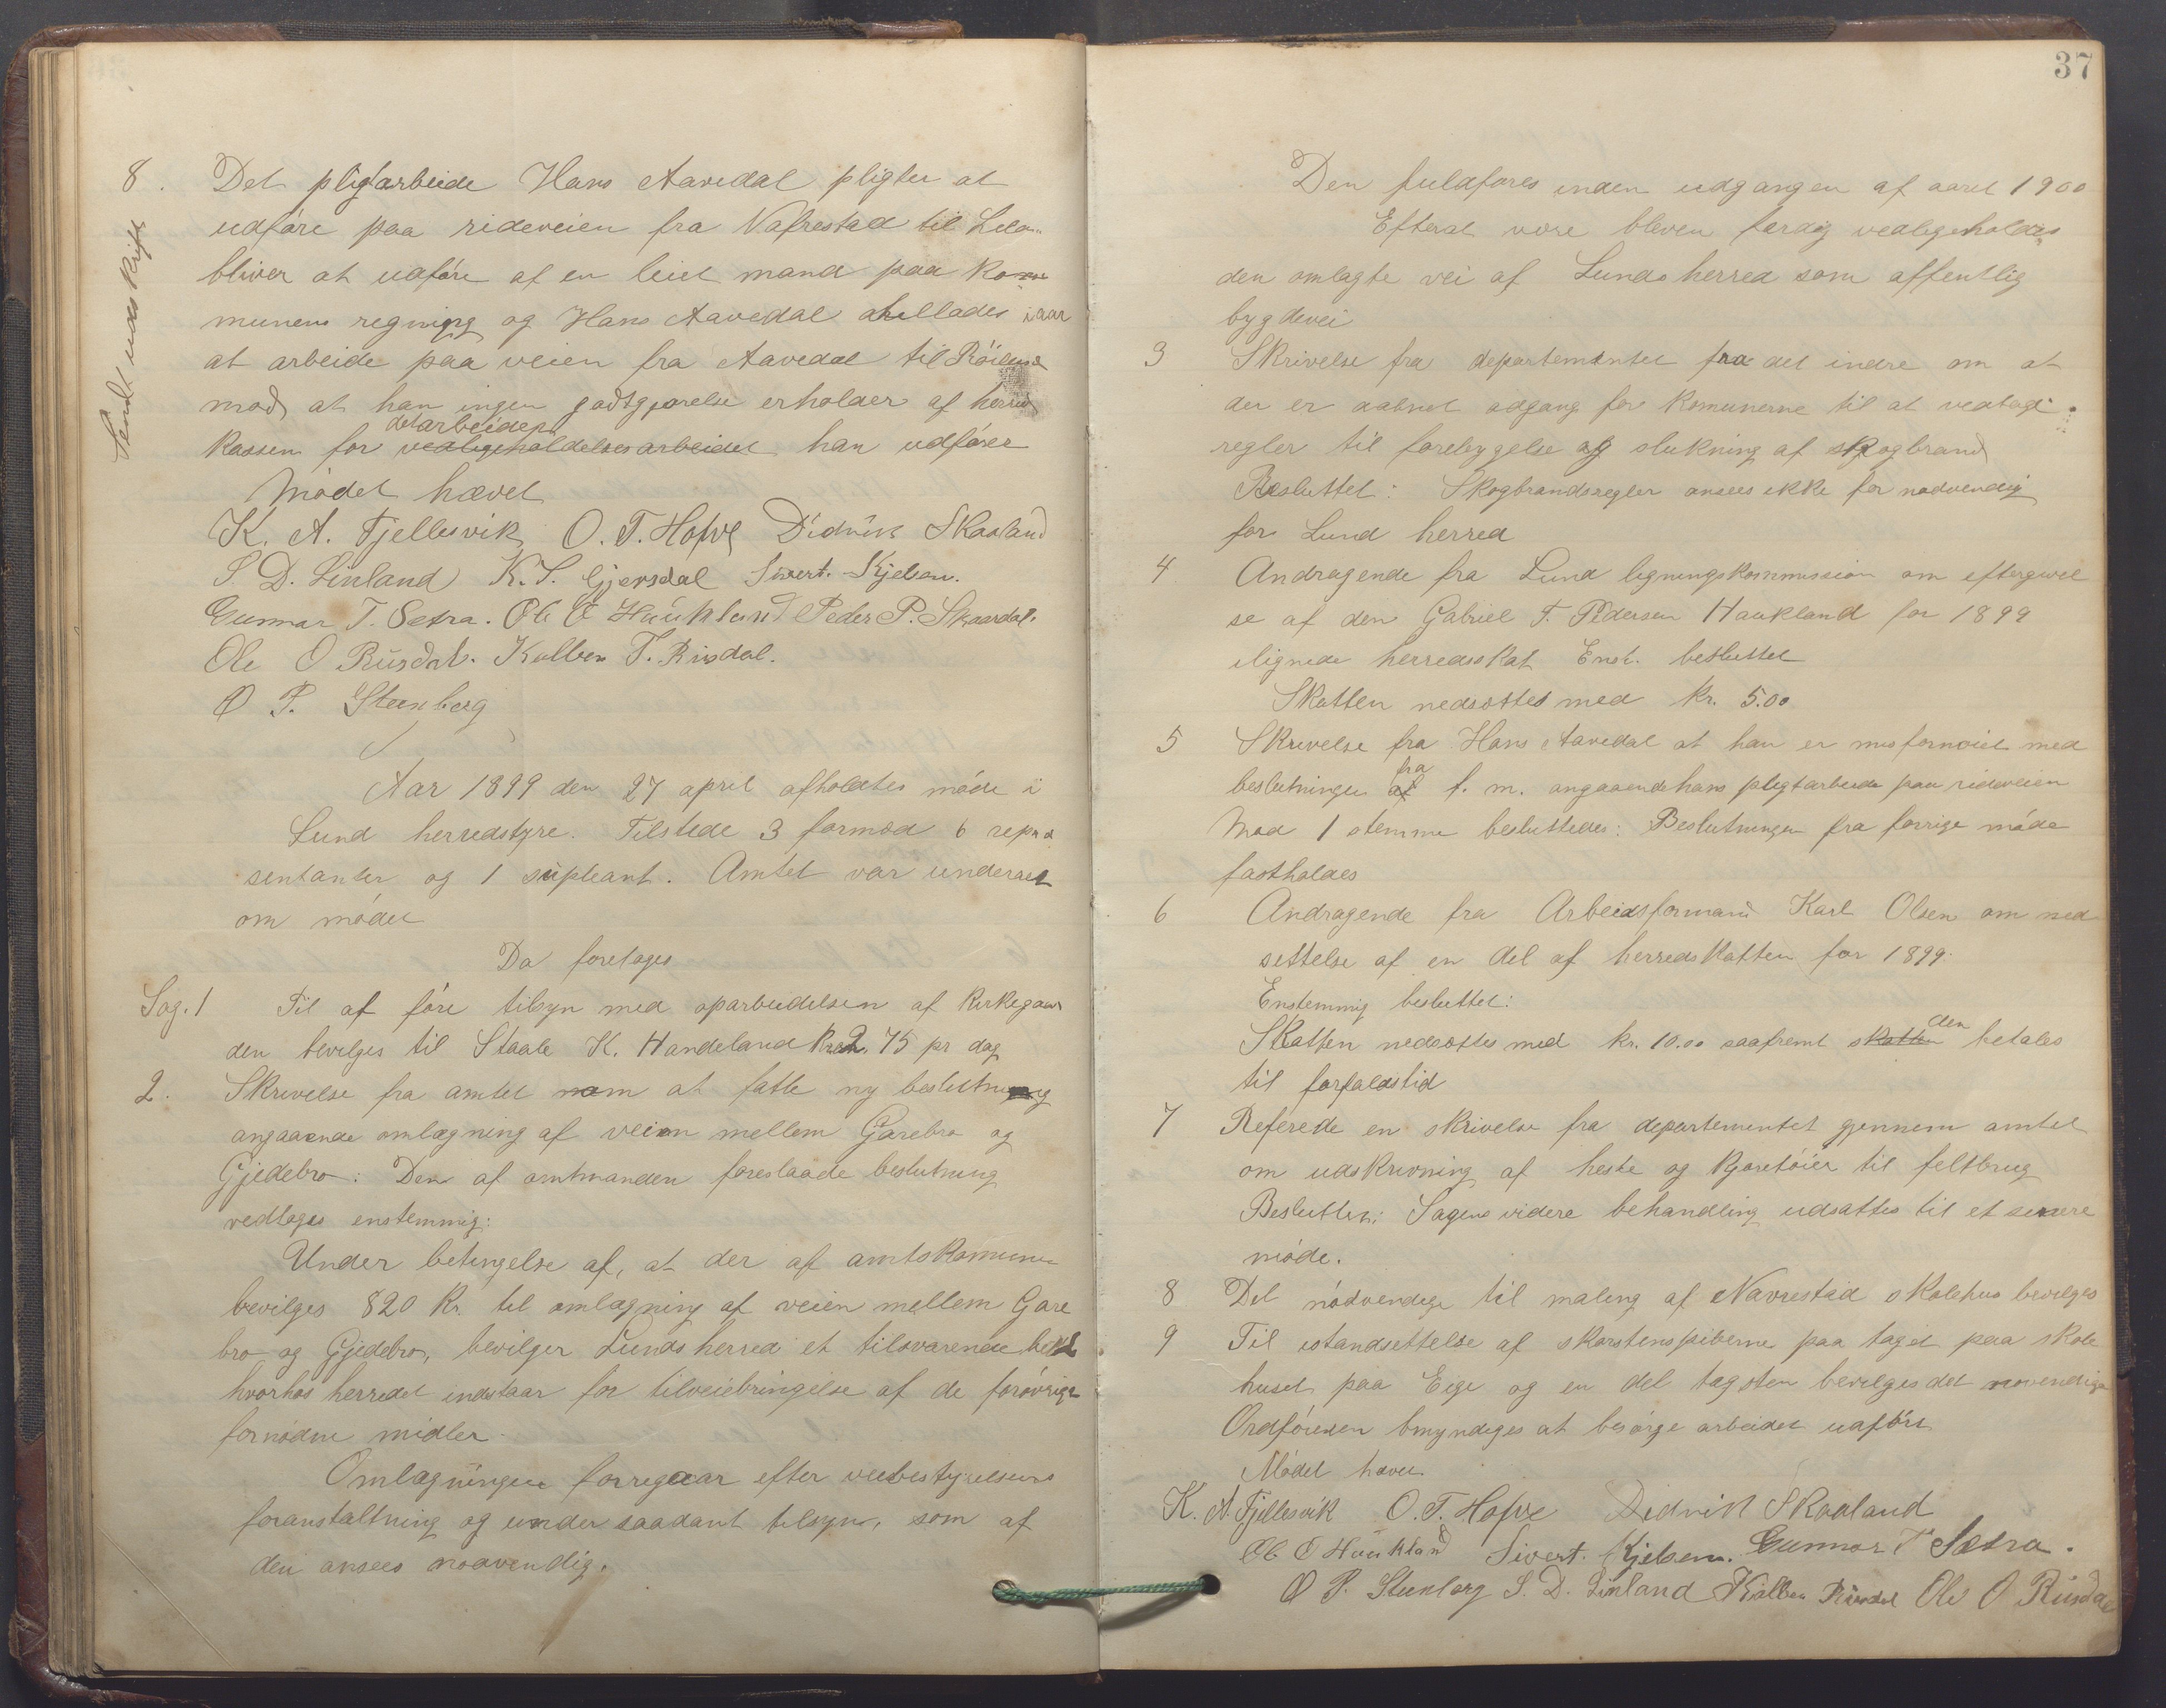 8. Det pligtarbeide Hans Aavedal pligter at
udføre paa rideveien fra Nafrestad til
bliver at udføre af en leiet mand paa Kom
munens regning og Hans Aavedal tillades iaar
at arbeide paa veien fra Aavedal til
mod at han ingen godtgjørelse erholder af herred
det arbeide
Kassen for vedligeholdelsesarbeidet han udfører
Sendt udskrift
Mødet hævet
K. A. Fjellesvik O. T. Hofve Didrik Skaaland
S. D. Linland K. S. Gjersdal Sivert. Kjelsen.
Gunnar T. Sætra. Ole O Haukland Peder P. Skaardal.
Ole O Rusdal. Kolben T. Risdal.
O P. Steenberg
Aar 1899 den 27 april afholdtes møde i
Lund herredstyre. Tilstede 3 formød 6 repræ
sentanter og 1 supleant. Amtet var underret
om mødet
Da foretages
Sag. 1 Til at føre tilsyn med oparbeidelsen af Kirkegaar
den bevilges til Staale K. Handeland Kr 2.75 pr dag
2. Skrivelse fra amtet om at fatte ny beslutning
angaaende omlægning af veien mellem Garebro og
Gjedebro: Den af amtmanden foreslaade beslutning
vedtages enstemmig:
Under betingelse af, at der af amtskomunen
bevilges 820 Kr. til omlægning af veien mellem Gare
bro og Gjedebro, bevilger Lunds herred et tilsvarende beløb
hvorhos herredet indstaar for tilveiebringelse af de forøvrigt
fornødne midler.
Omlægningen forregaar efter veibestyrelsens
foranstaltning og under saadant tilsyn, som af
den ansees nødvendig.
37
Den fuldføres inden udgangen af aaret 1900
Efterat være bleven færdig vedligeholdes
den omlagte vei af Lunds herred som offentlig
bygdevei
3 Skrivelse fra departementet fra det indre om at
der er aabnet adgang for Komunerne til at vedtage
regler til forebygelse og slukning af skogbrand
Besluttet: Skogbrandsregler ansees ikke for nødvendig
for Lund herred
4 Andragende fra Lund ligningskommission om eftergivel
se af den Gabriel T. Pedersen Haukland for 1899
ilignede herredsskat Enst. besluttet
Skatten nedsættes med kr. 5.00
5 Skrivelse fra Hans Aavedal at han er misfornøiet med
fra
beslutningen af f. m. angaaende hans pligtarbeide paa rideveien
Mod 1 stemme besluttedes: Beslutningen fra forrige møde
fastholdes
6 Andragende fra Arbeidsformand Karl Olsen om ned
settelse af en del af herredskatten for 1899.
Enstemmig besluttet:
den
Skatten nedsættes med kr. 10.00 saafremt skatten betales
til forfaldstid
7 Referede en skrivelse fra departementet gjennem amtet
om udskrivning af heste og Kjøretøier til feltbrug
Besluttet: Sagens videre behandling udsattes til et senere
møde.
8 Det nødvendige til maling af Navrestad skolehus bevilges
9 Til istandsettelse af skorstenspiberne paa taget paa skole
huset paa Eige og en del tagsten bevilges det nøvendige
Ordføreren bmyndiges at besørge arbeidet udført
Mødet hævet
K. A. Fjellesvik O. T. Hofve Didrik Skaaland
Ole O Haukland Sivert. Kjelsen. Gunnar T Sætra.
O P. Steenberg S. D. Linland Kolben Risdal Ole O Rusdal